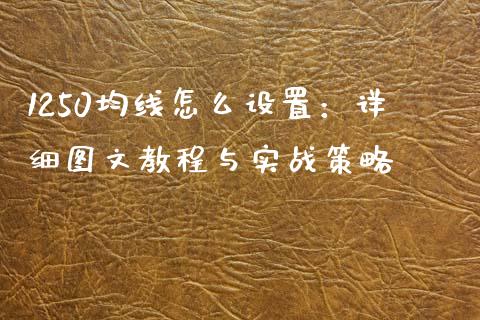 1250均线怎么设置：详
细图文教程与实战策略